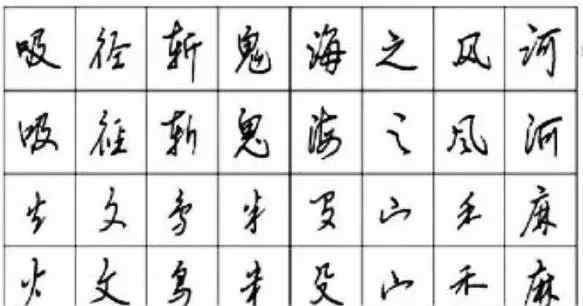 吸 径 斩 鬼 海 之 风 河
吸 径 斩 鬼 海 之 风 河
火 文 鸟 米 山 禾 麻
火 文 鸟 米 没 山 禾 麻